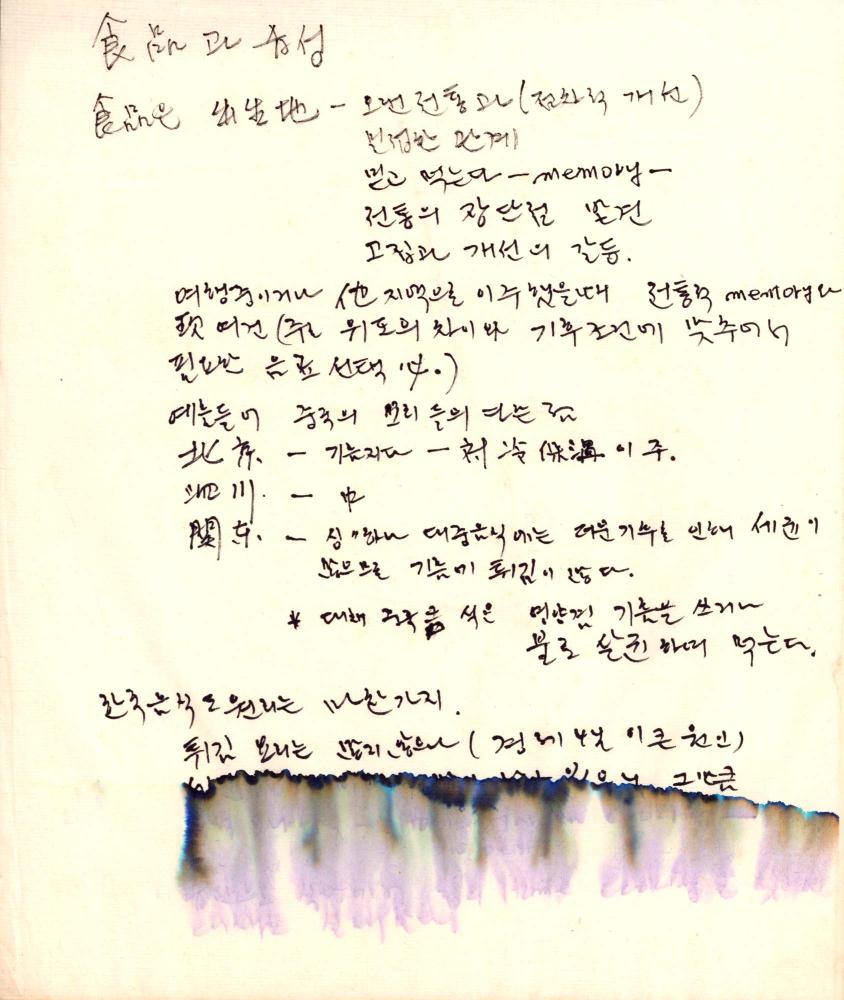 食品 과 속성
食品은 出生地 - 오랜 전통과 (점차적 개선)
밀접한 관계
믿고 먹는다 - memory -
전통의 장단점 발견
고집과 개선의 갈등.
여행중이거나 他 지역으로 이주했을때 전통적 memory와
현 여건 (주로 위도의 차이와 기후조건에 맞추어서
필요한 음료 선택 必.)
예를들어 중국의 요리들의 다른점
北京. - 기름지다 - 対冷 保温 이 주.
四川. - 中
関东. - 싱싱하나 대중음식에는 더운기후로 인해 세균이
많으므로 기름에 튀김이 많다.
* 대체 중국음식은 영양겸 기름을 쓰거나
불로 살균하며 먹는다.
한국음식도 원리는 마찬가지.
튀김 요리는 많지 않으나 (경제 이 큰 원인)
그만큼